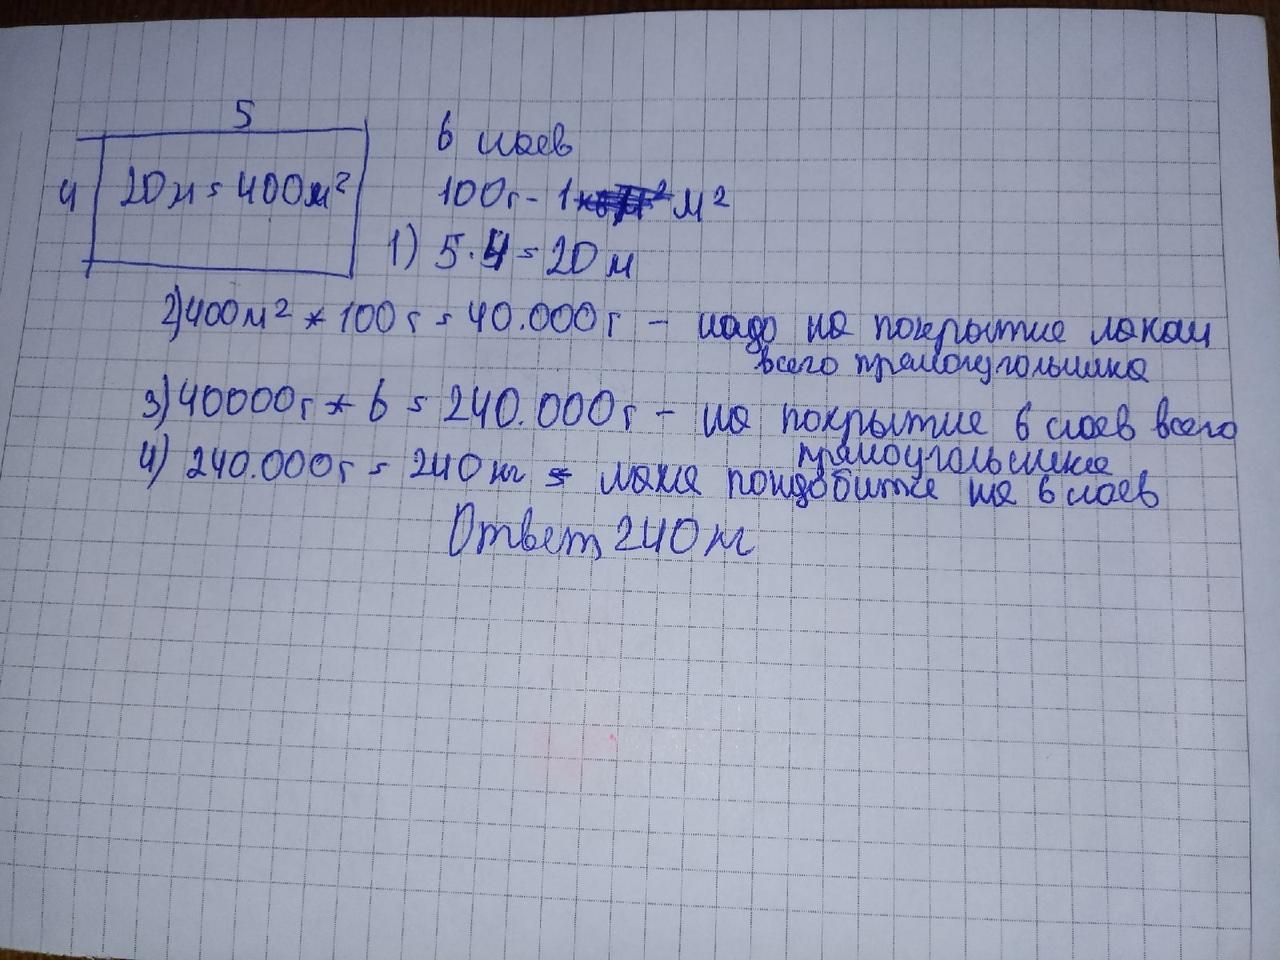 5
6 слоев
4 20м = 400м²
100г - 1 м²
1) 5·4 = 20 м
2) 400м² * 100г = 40.000г - надо на покрытие лаком
всего прямоугольника
3) 40000г * 6 = 240.000г - на покрытие 6 слоев всего
прямоугольника
4) 240.000г = 240 кг = лака пондобитже на 6 слоев
Ответ, 240 кг